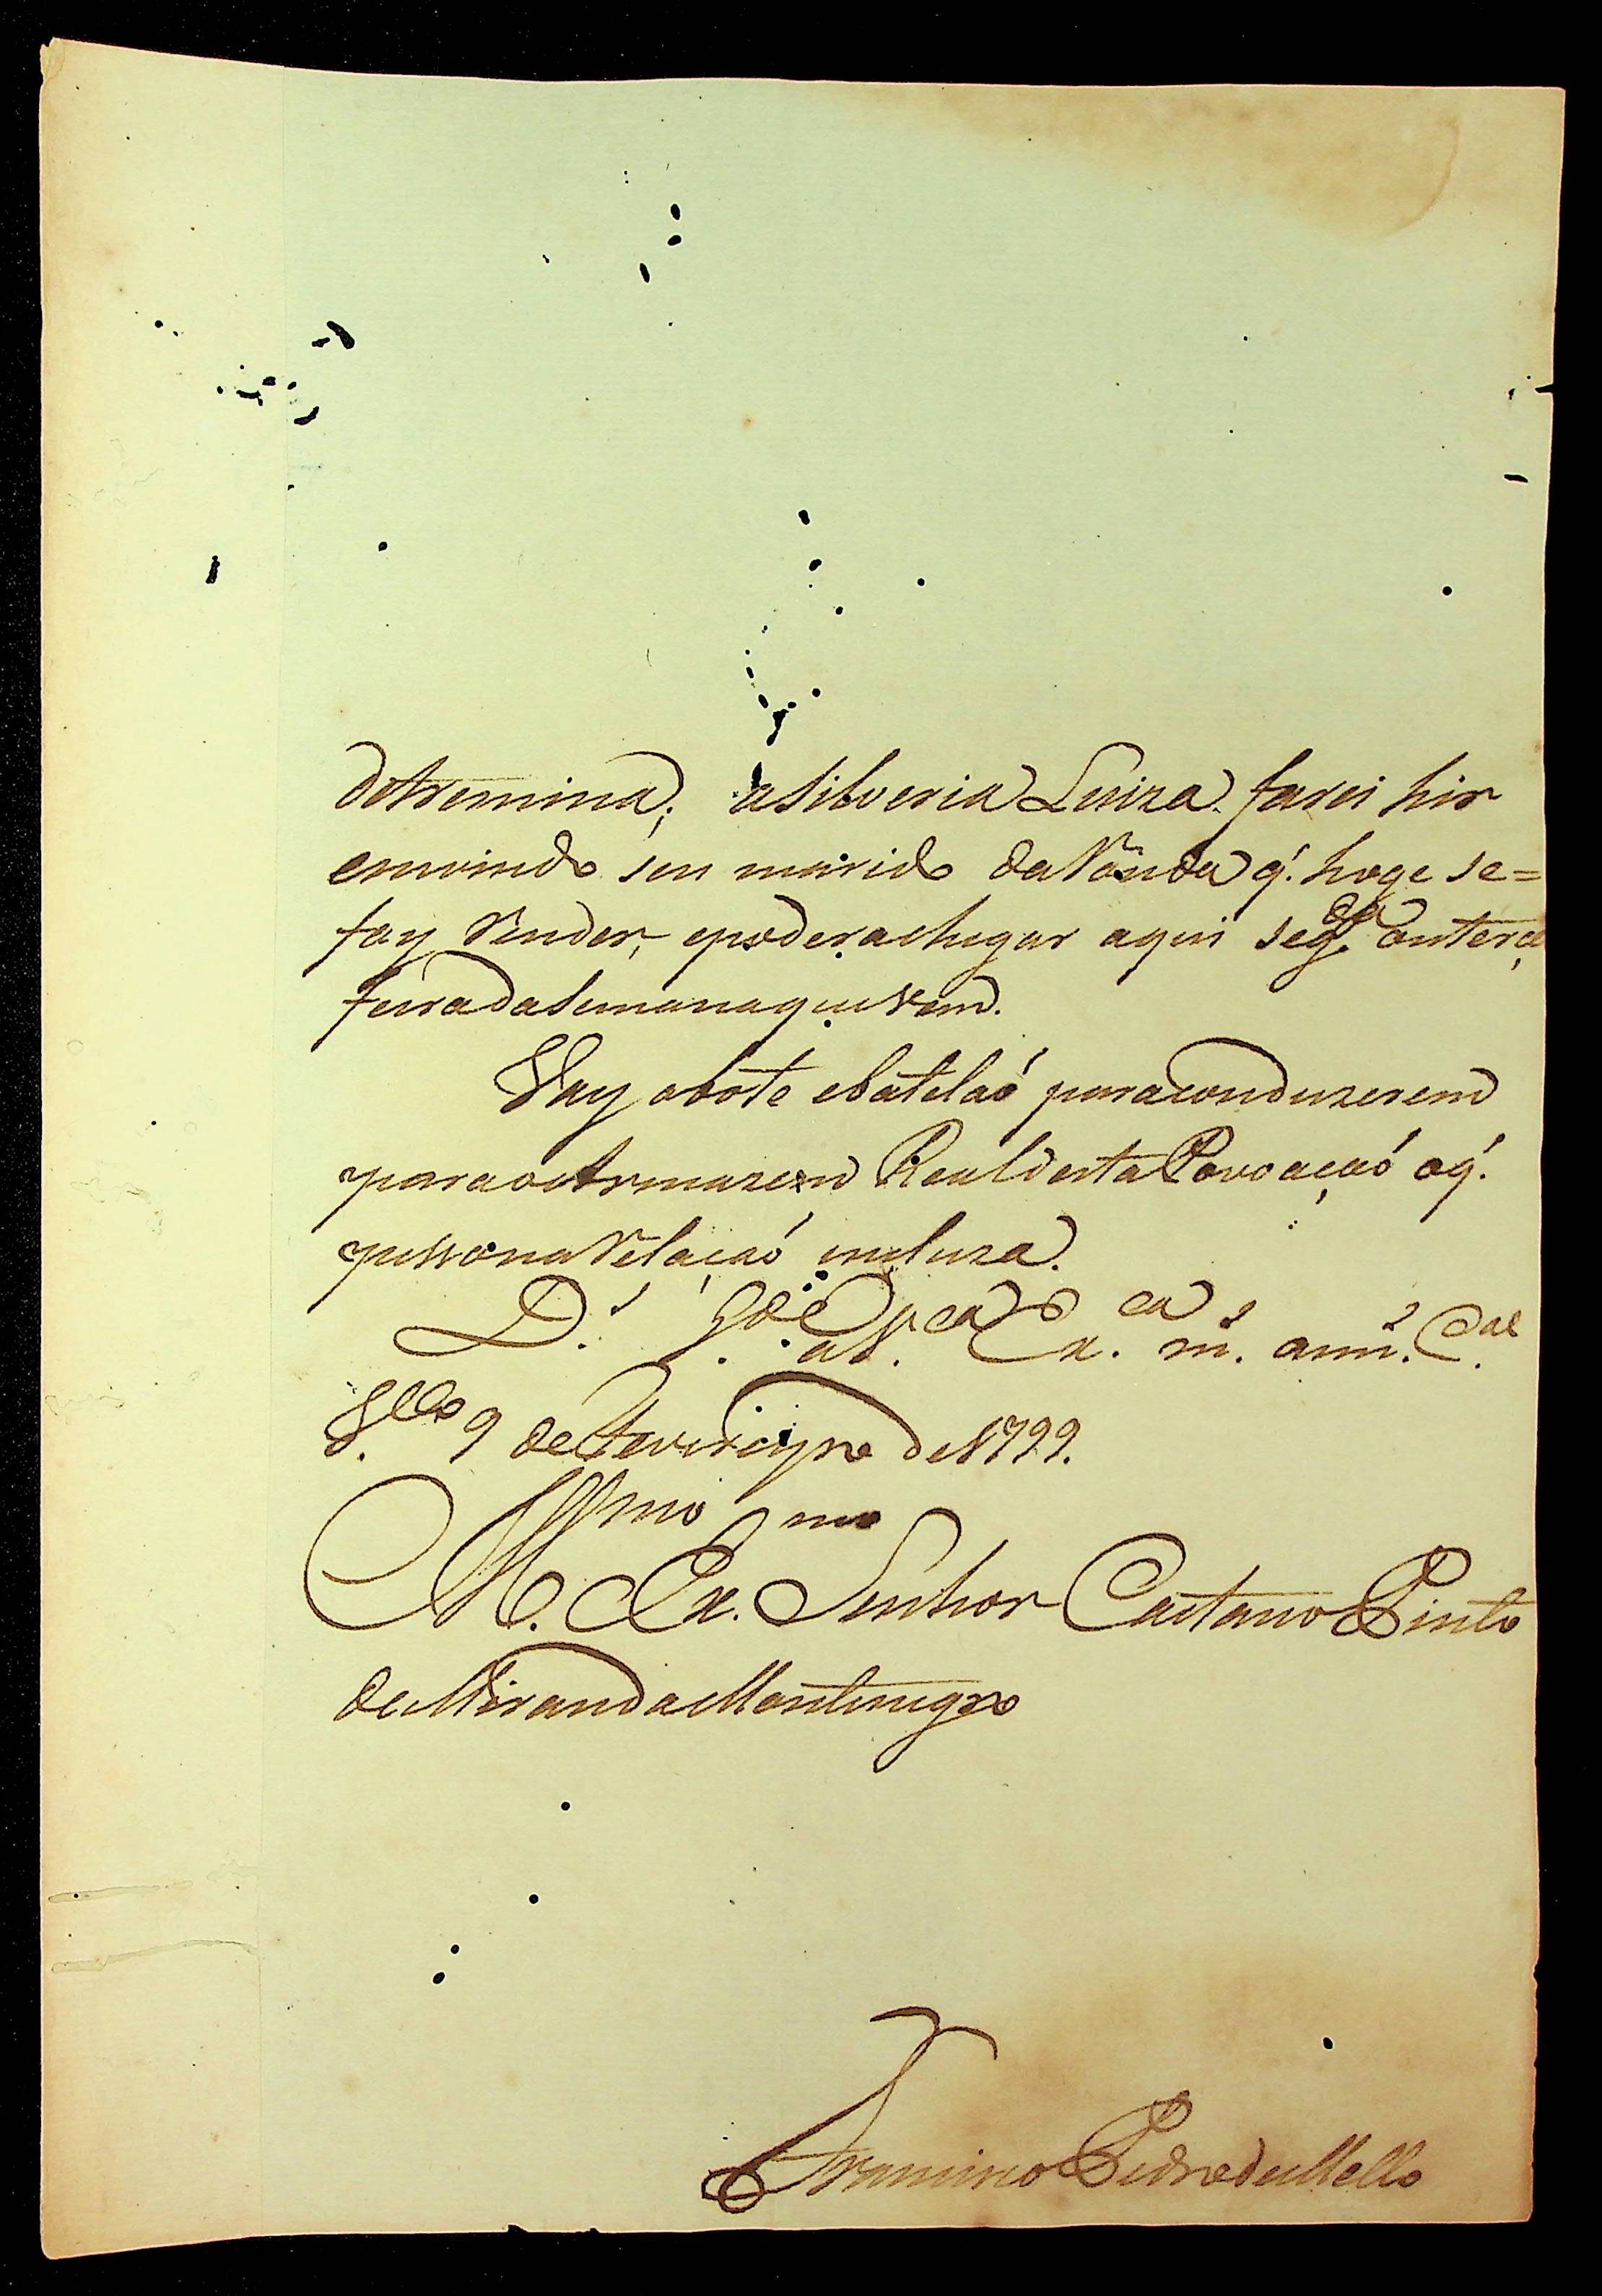 detremina; aSilveria Luiza farei hir
emvindo seu marido da Rônda q̃. hoge se=
fay Render, epoderachegar aqui seg.da outerça
feira daSemana que vem.
Vay obóte ebatelaó paraconduzerem
paraoArmazem Real desta Povoaçaó oq̃.
pesso na Relaçaó incluza.
D.s g.de aV. Ex.ca m.s ann.s C.al
S. 9 de Fevereyro de 1799.
Ill.mo Ex.mo Senhor Caetano Pinto
de Miranda Montenegro
Francisco Pedro de Mello